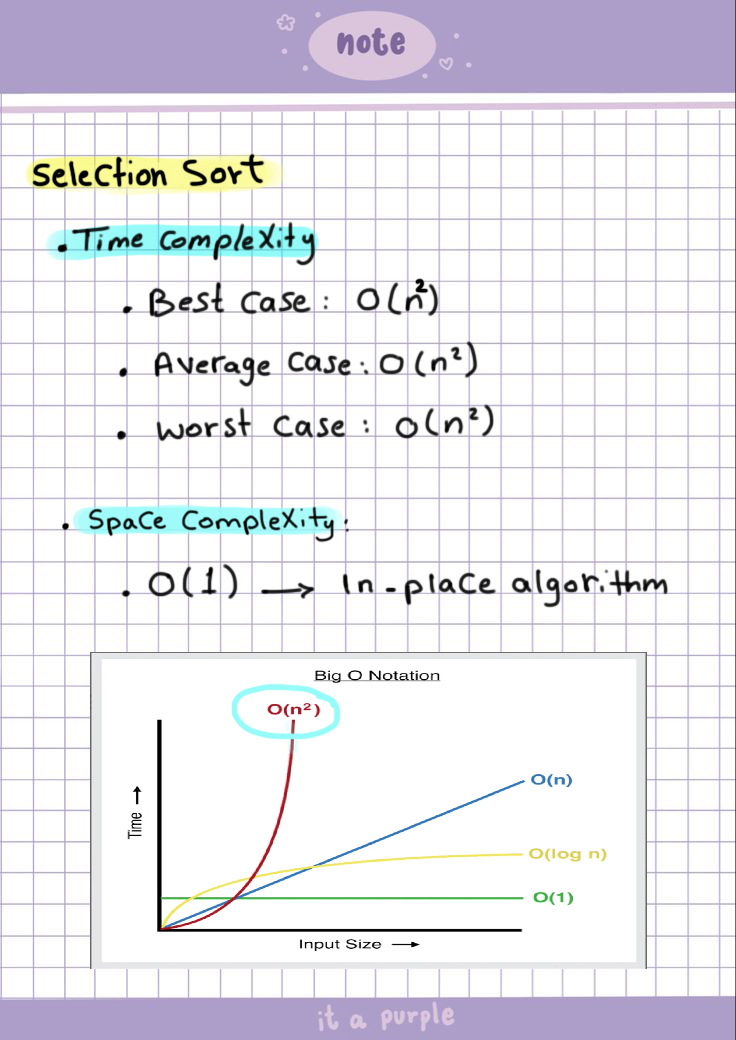 note
Selection Sort
• Time Complexity
• Best Case: O(n²)
• Average Case: O(n²)
• Worst Case: O(n²)
• Space Complexity:
• O(1) → In-place algorithm
Big O Notation
O(n²)
O(n)
O(log n)
O(1)
Time →
Input Size →
it a purple